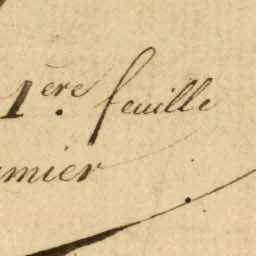 1ère. feuille
mier